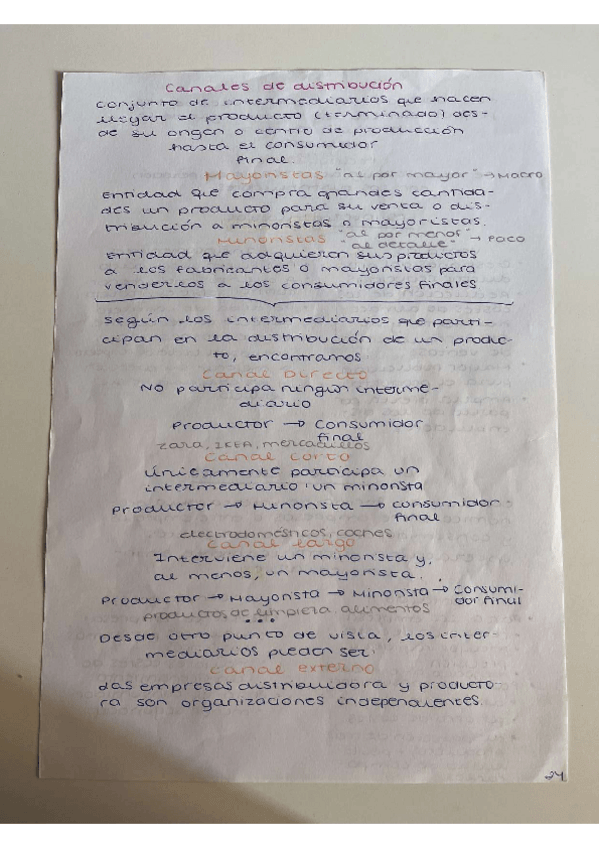 Canales de distribución
conjunto de intermediarios que hacen
llegar el producto (terminado) des-
de su origen o centro de producción
hasta el consumidor
final.
Mayoristas "al por mayor" → Macro
Entidad que compra grandes cantida-
des un producto para su venta o dis-
tribución a minoristas o mayoristas.
Minoristas "al por menor" → Poco
"al detalle"
Entidad que adquieren sus productos
a los fabricantes o mayoristas para
venderlos a los consumidores finales
según los intermediarios que parti-
cipan en la distribución de un produc-
to, encontramos
Canal Directo
No participa ningún interme-
diario
Productor → Consumidor
final
Zara, IKEA, mercadillos
Canal corto
Únicamente participa un
intermediario: un minorista
Productor → Minorista → consumidor
final
electrodomésticos, coches
Canal largo
Interviene un minorista y,
al menos, un mayorista.
Productor → Mayorista → Minorista → Consumi-
dor final
productos de limpieza, alimentos
...
Desde otro punto de vista, los inter-
mediarios pueden ser:
Canal externo
Las empresas distribuidora y producto
ra son organizaciones independientes.
24